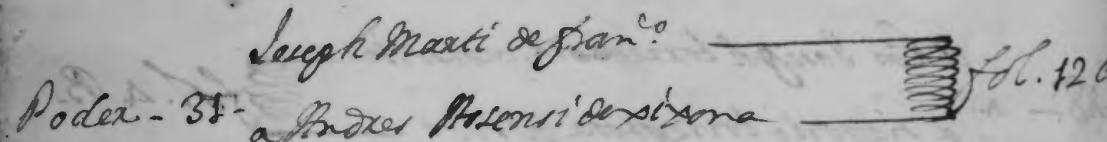 Joseph Marti de Fran.co
Poder - 31 - a Andres Asensi de xixona
fol. 120